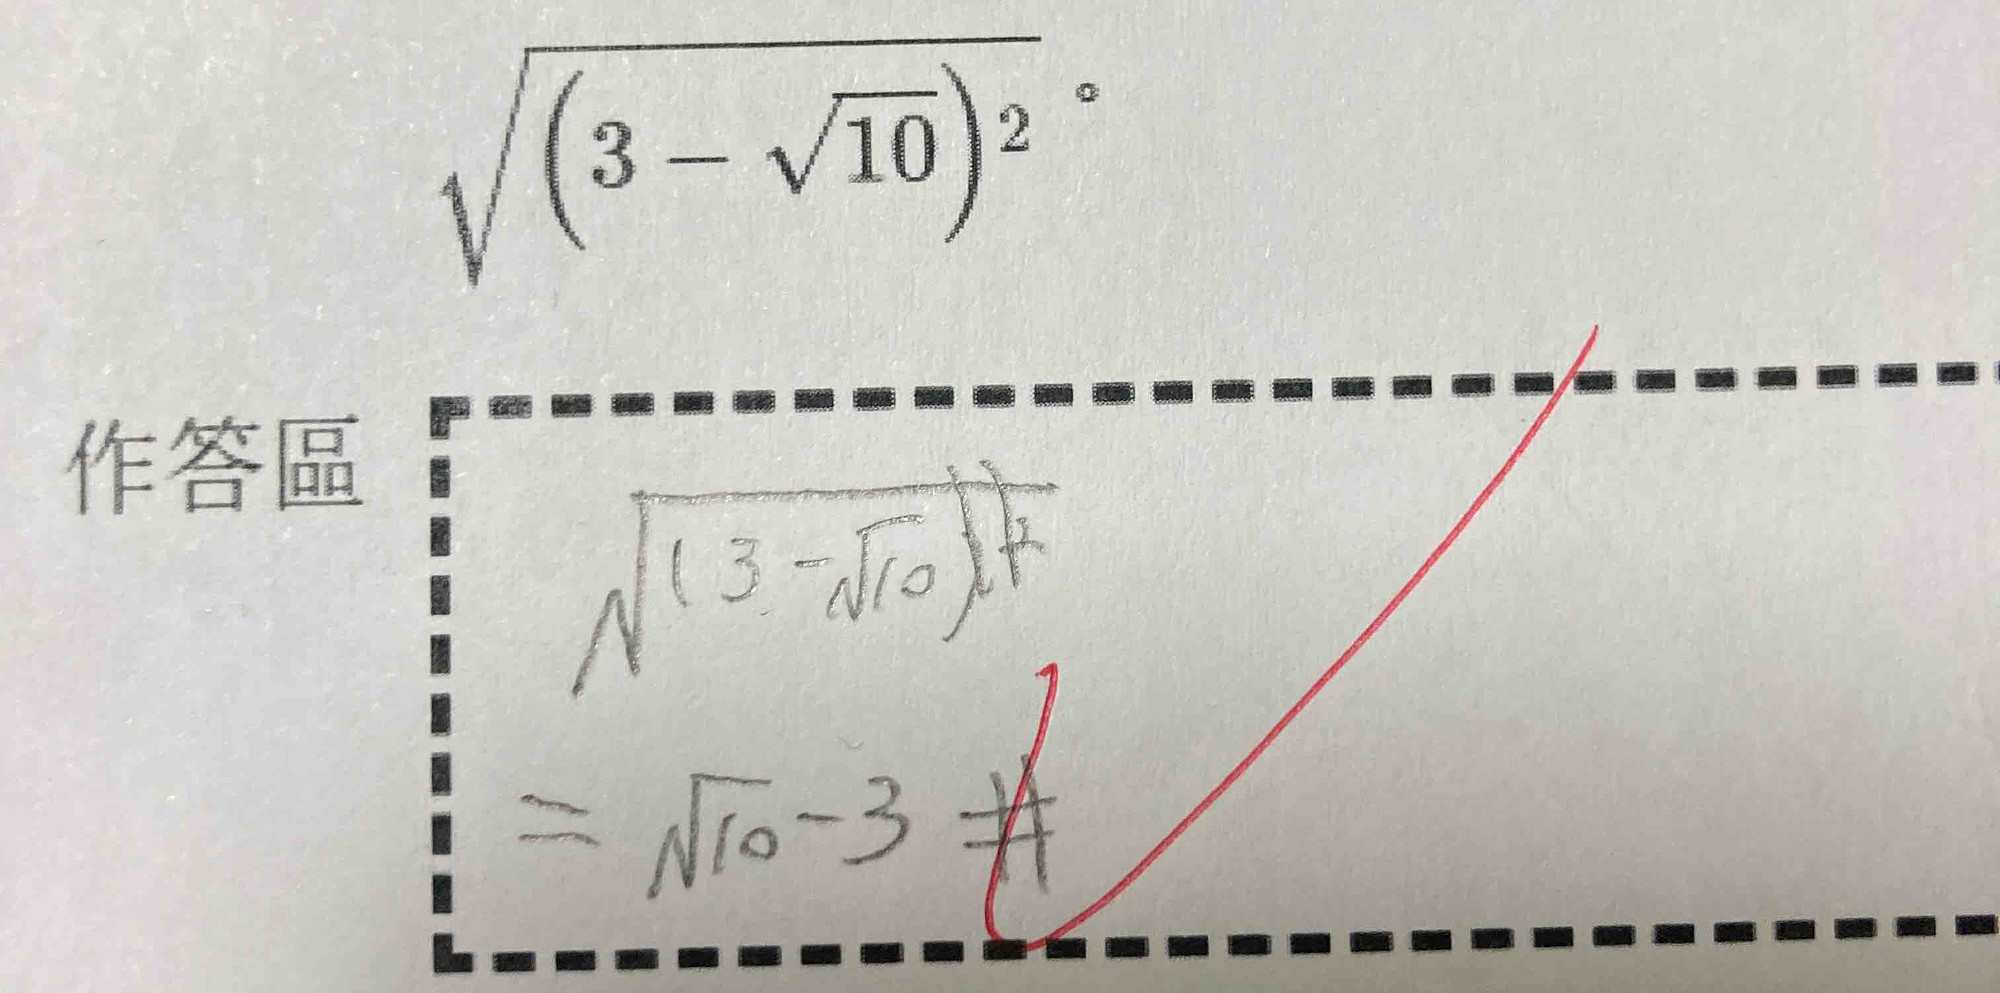 √(3 − √10)² 。
作答區
√(3 − √10)²
= √10 − 3 #